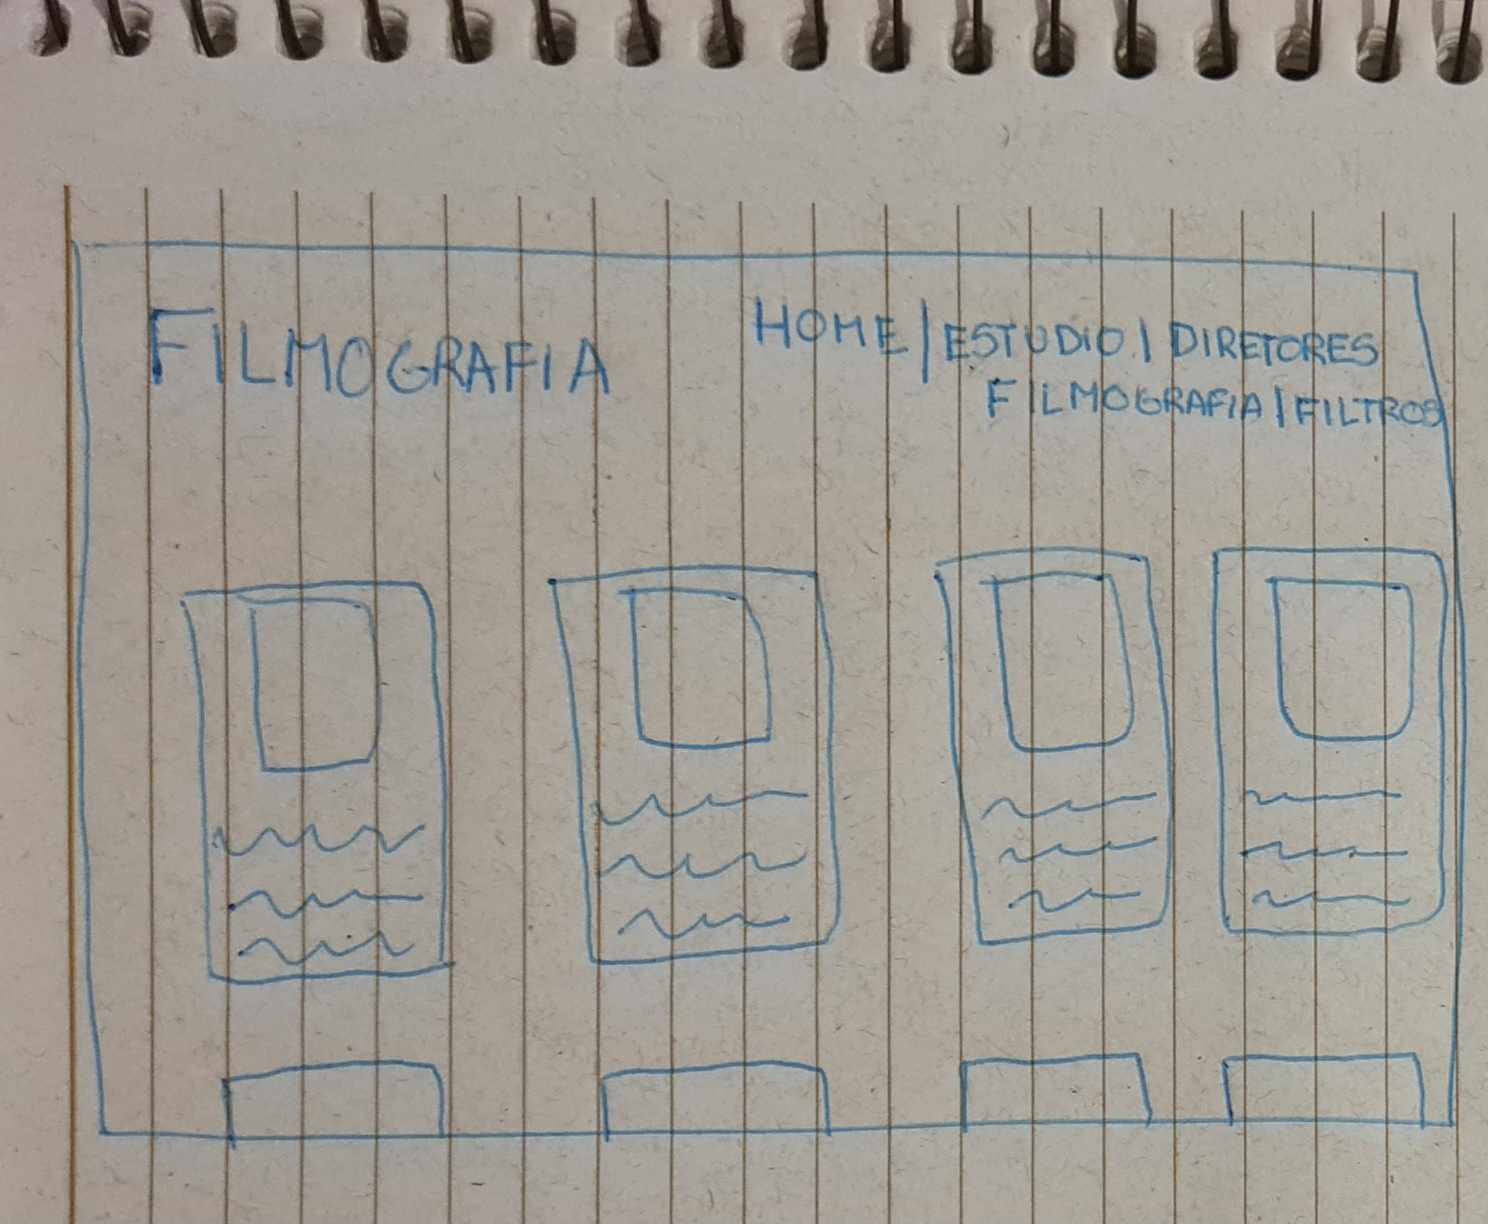 FILMOGRAFIA
HOME | ESTUDIO | DIRETORES
FILMOGRAFIA | FILTROS